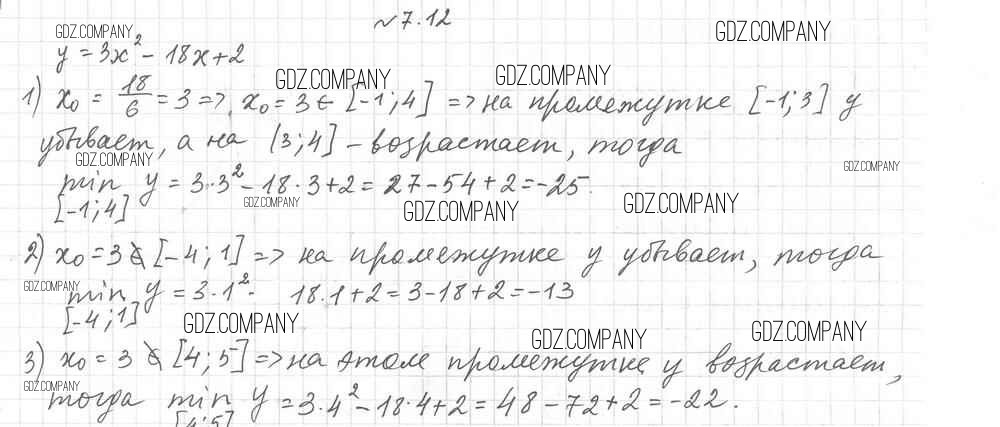 №7.12
GDZ.COMPANY
GDZ.COMPANY
y = 3x² - 18x + 2
GDZ.COMPANY
GDZ.COMPANY
1) x₀ = 18/6 = 3 => x₀ = 3 ∈ [-1; 4] => на промежутке [-1; 3] y
убывает, а на (3; 4] - возрастает, тогда
GDZ.COMPANY
GDZ.COMPANY
min y = 3·3² - 18·3 + 2 = 27 - 54 + 2 = -25.
[-1; 4]
GDZ.COMPANY
GDZ.COMPANY
GDZ.COMPANY
2) x₀ = 3 ∉ [-4; 1] => на промежутке y убывает, тогда
GDZ.COMPANY
min y = 3·1² - 18·1 + 2 = 3 - 18 + 2 = -13
[-4; 1]
GDZ.COMPANY
GDZ.COMPANY
GDZ.COMPANY
3) x₀ = 3 ∉ [4; 5] => на этом промежутке y возрастает,
GDZ.COMPANY
тогда min y = 3·4² - 18·4 + 2 = 48 - 72 + 2 = -22.
[4; 5]